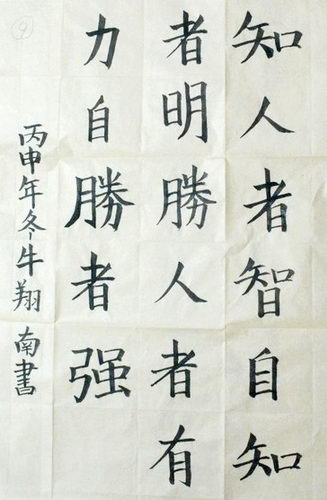 知人者智自知
者明勝人者有
力自勝者强
丙申年冬牛翔南書
⑨